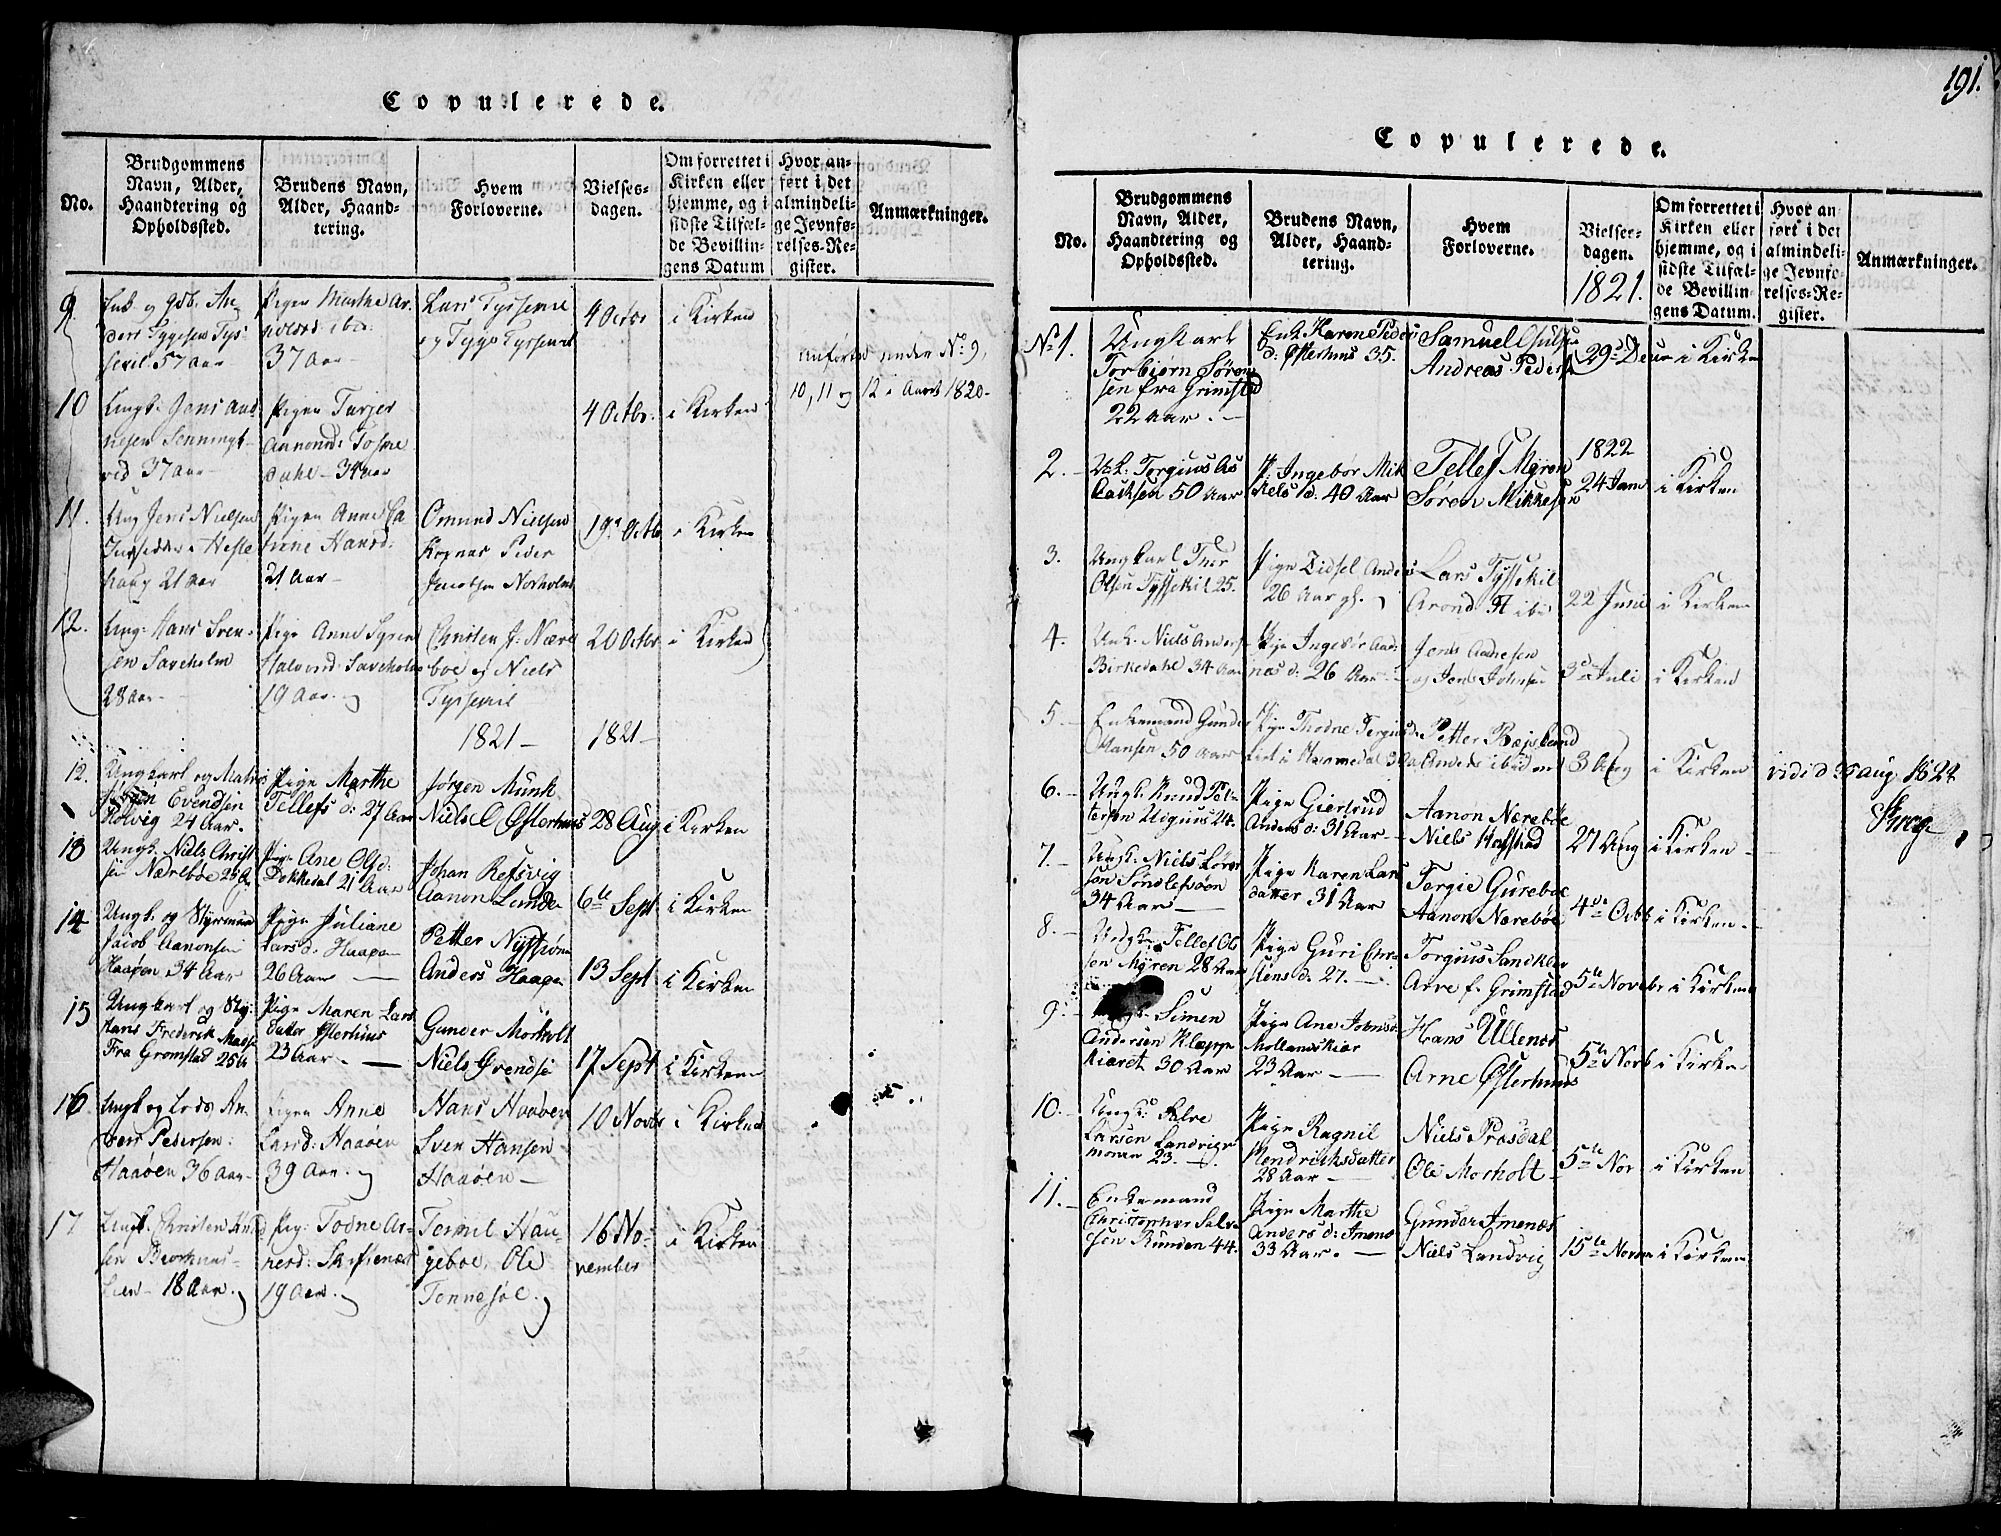 Copulerede.
No.
Brudgommens Navn, Alder, Haandtering og Opholdssted.
Brudens Navn, Alder, Haandtering.
Hvem Forloverne.
Vielses-dagen.
Om forrettet i Kirken eller hjemme, og i sidste Tilfælde Bevillingens Datum
Hvor anført i det almindelige Jevnførelses-Register.
Anmærkninger.
9.
Enk. og Gdb. An-
ders Tygesen Tys-
sevil 57 Aar
Pigen Marthe Ar-
ibd:
37 Aar
Lars Tyssevil
og Tyge Tyssevil
4 Octbr
i Kirken
Anførte under No. 9,
10, 11 og 12 i Aaret 1820.
10
Ungk. Jens And-
resen
37 Aar
Pigen Turjer
Aanonsd:
dahl 34 Aar
4 Octbr.
i Kirken
11.
Ung Jens Nielsen
i Hesle-
haug 21 Aar
Pigen Anne Ca-
trine Hansd:
21 Aar
Omund Nielsen
Kognes Peder
Jacobsen Norholm
19 Octb
i Kirken
12.
Ung. Hans Sven-
sen Saveholm
28 Aar
Pige Anne
Halvord: Saveholm
19 Aar.
Christen J. Nære
boe og Niels
Tyssevil
20 Octbr
i Kirken
1821
1821
12.
Ungkarl og Matros
Evendsen
Kolvig 24 Aar.
Pige Marthe
Tellefs d: 27 Aar
Jørgen Munk
Niels O Østerhus
28 Aug
i Kirken
13
Ungk. Niels Christ
sen Nærebøe 25 A
Pige Ane Olsd:
Dokkedal 21 Aar
Johan Refsvig
Aanon Lunden
6te Sept
i Kirken
14
Ungk. og Styrmand
Jacob Aanonsen
Haaøen 34 Aar
Pige Juliane
Lars d: Haaøen
26 Aar
Petter
Anders Haaøen
13 Sept
i Kirken
15
Ungkarl og Sty.
Hans Frederik Mads
Fra Gromstad 25 A
Pige Maren Lars
datter Østerhus
23 Aar
Gunder Morholt
Niels Evendse
17 Sept
i Kirken
16.
Ungk og Lods An-
ders Pedersen
Haaøen 36 Aar
Pigen Anne
Larsd: Haaøen
39 Aar.
Hans Haaøen
Sven Hansen
Haaøen
10 Novbr
i Kirken
17
Ungk. Christen Knud
sen
Lien 18 Aar.
Pig: Todne Ar-
nesd:
19 Aar.
Termil Hau-
geboe, Ole
Tonnesøl.
16 No-
vember
i Kirken
191.
Copulerede.
No.
Brudgommens Navn, Alder, Haandtering og Opholdssted.
Brudens Navn, Alder, Haandtering.
Hvem Forloverne.
Vielses-dagen.
1821.
Om forrettet i Kirken eller hjemme, og i sidste Tilfælde Bevillingens Datum.
Hvor anført i det almindelige Jevnførelses-Register.
Anmærkninger.
No 1.
Ungkarl
Torbiørn Søren
sen fra Grimstad
22 Aar.
Enk. Karen Peders
d: Østerhus 35.
Samuel
Andreas Peders
29 Decem
i Kirken
2.
Uk. Torgius As
lachsen 50 Aar
P. Ingebør Mik
kels d: 40 Aar
Tellef Myren
Søren Mikkelsen
1822
24 Jan
i Kirken
3.
Ungkarl Thor
Olsen Tyssekil 25.
Pige Sidsel Anders
26 Aar gl.
Lars Tyssekil
Arond ibid
22 Juni
i Kirken
4.
Uk. Niels Anders
Birkedahl 34 Aar
Pige Ingebør Aa
nas d: 26 Aar
Jens Andresen
og Jens Johnsen
3d Juli
i Kirken
5.
Enkemand Gunder
Hansen 50 Aar
Pige Thodne Tergius d
Petter Bejslaand
3 Aug
i Kirken
vidi d 26 Aug 1822
6.
Ungk. Knud Pet-
tersen 24.
Pige Giertrud
Anders d: 31 Aar
Aanon Nærebøe
Niels
27 Aug
i Kirken
7.
Ungk. Niels Søren
sen Sondlefsøen
34 Aar
Pige Karen Lars
datter 31 Aar
Tergie Gurebøe
Aanon Nærebøe
4de Octb
i Kirken
8.
Ungk. Tellef Ol
sen Myren 28 Aar
Pige Guri Chri
stens d: 27.
Torgius
Arve f. Grimstad
5te Novbr
i Kirken
9.
Ungk. Simen
Andersen Kleppe
kiæret 30 Aar
Pige Ane Johns
Mollandskiær
23 Aar
Hans Ullenes
Arne Østerhus
5te Novb
i Kirken
10.
Ungk. Salve
Larsen Landvigs
monen 23.
Pige Ragnil
Hendrichsdatter
28 Aar
Niels Prosdal
Ole Morholt
5te Nov
i Kirken
11.
Enkemand
Christopher Salve
sen Runden 44.
Pige Marthe
Anders d: Amenes
33 Aar.
Gunder Amenes
Niels Landvig
15te Novem
i Kirken